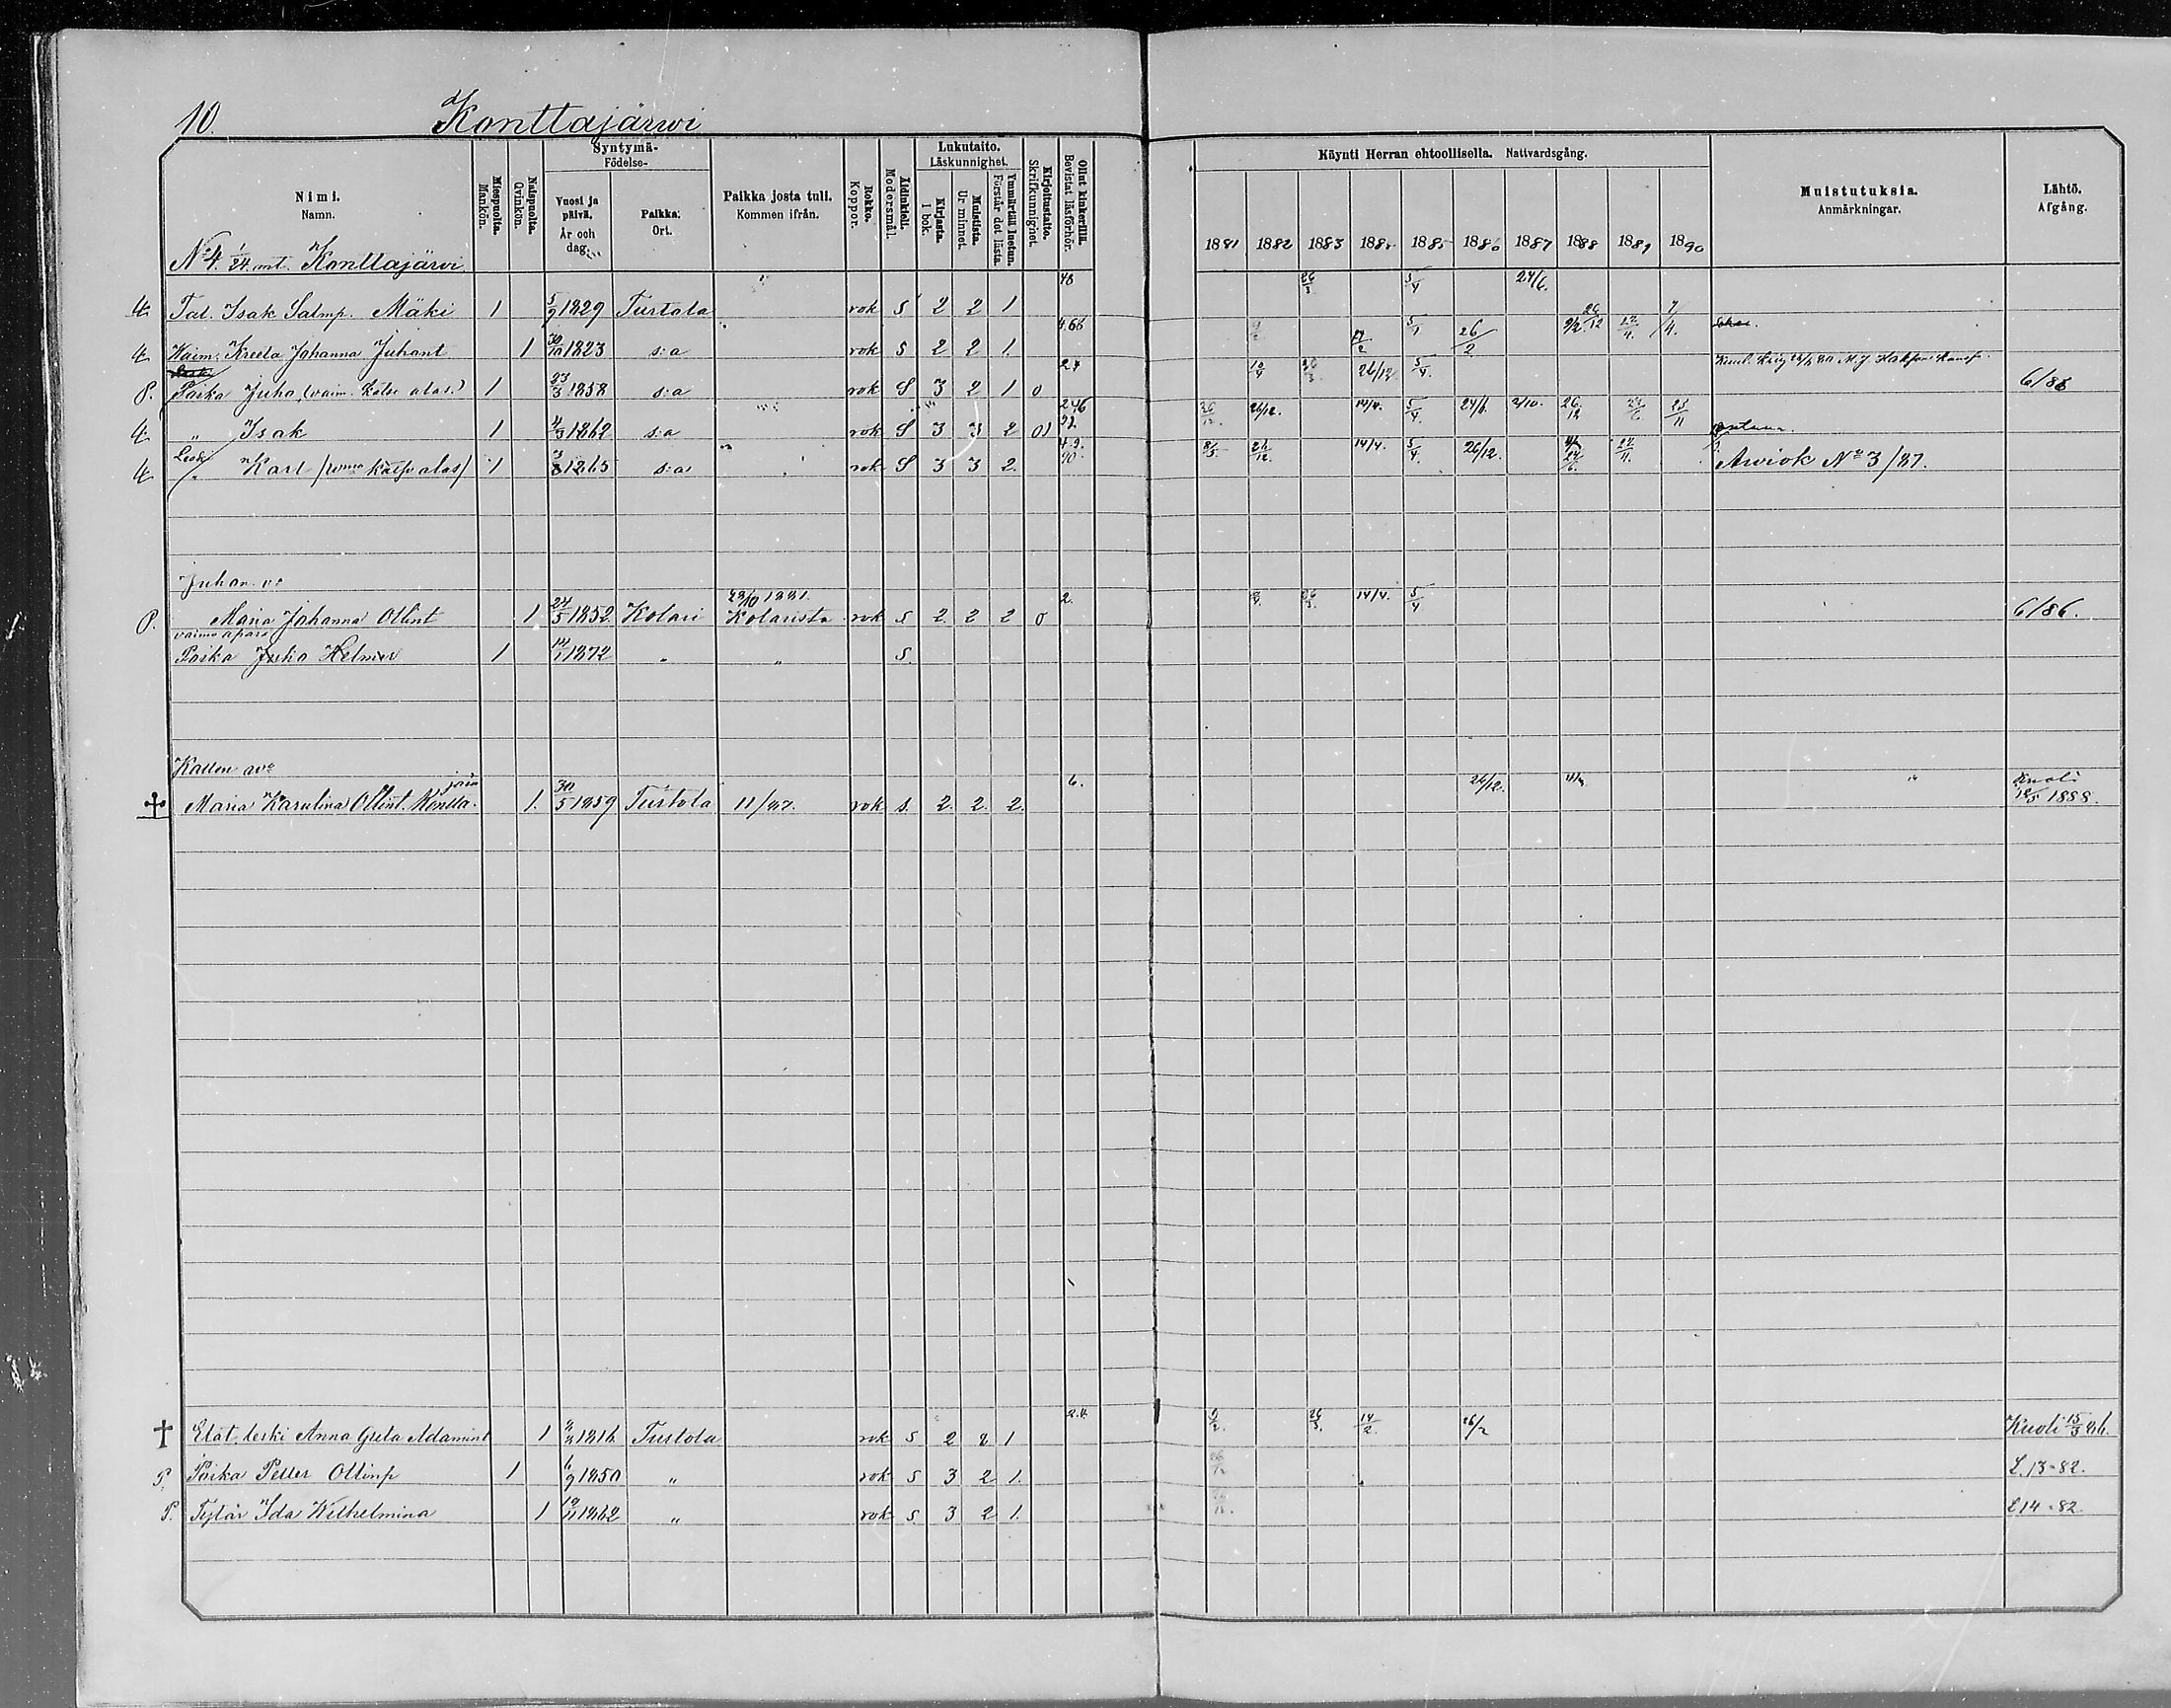 10. Konttajärwi
Nimi. Namn.
Miespuolta. Mankön.
Naispuolta. Qvinkön.
Syntymä- Födelse-
Vuosi ja päivä. År och dag.
Paikka. Ort.
Paikka josta tuli. Kommen ifrån.
Rokko. Koppor.
Äidinkieli. Modersmål.
Lukutaito. Läskunnighet.
Kirjasta. I bok.
Muistista. Ur minnet.
Ymmärtää luetun. Förstår det lästa.
Kirjoitustaito. Skrifkunnighet.
Ollut kinkerillä. Bevistat läsförhör.
Käynti Herran ehtoollisella. Nattvardsgång.
1881 1882 1883 1884 1885 1886 1887 1888 1889 1890
Muistutuksia. Anmärkningar.
Lähtö. Afgång.
No 4. 1/24 mt. Konttajärvi
48 26/3 5/4 24/6.
Tal. Isak Salmp. Mäki 1 5/9 1829 Turtola rok S 2 2 1
4.68 17/2 26/2 9/2. 26/12 7/4.
Waim. Kreeta Johanna Juhant 1 30/10 1823 s:a rok S 2 2 1.
27 26/12 5/4.
P. Poika Juho (vaim. Katso alas.) 1 23/3 1858 s:a rok S 3 2 1 0 6/86
246 26/12. 26/12. 14/4. 5/4. 24/6. 2/10. 26/12 23/11
" Isak 1 4/3 1862 s:a rok S 3 3 2 01
4.9. 90. 8/5 26/12. 14/4 5/4. 26/12.
Leski
" Karl (waimo katso alas) 1 3/8 1865 s:a rok S 3 3 2. Awiok No 3/87.
Juhon v:o
28/10 1881. 2. 26/3. 14/4. 5/4
P. Maria Johanna Ollint 1 24/5 1852 Kolari Kolarista rok S 2 2 2 0 6/86.
vaimo apara
Poika Juho Helmer 1 14/1 1872 " " S.
Kallen avo
6. 26/12. Kuoli
Maria Karulina Ollint. Kontta- järvi 1. 30/5 1859 Turtola 11/87. rok s. 2. 2. 2. 12/5 1888.
2.4. 9/2. 26/3. 14/2. 26/2
† Elät. leski Anna Greta Adamint 1 1816 Turtola rok S 2 2 1 Kuoli 15/3 86.
P. Poika Petter Ollinp 1 6/9 1850 " rok S 3 2 1. L. 13-82.
P. Tytär Ida Wilhelmina 1 19/11 1862 " rok S. 3 2 1. L 14-82.